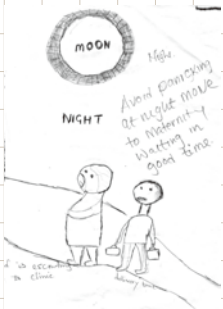 MOON
Night
NIGHT
Avoid panicking
at night move
to maternity
waiting in
good time
is escorting
to clinic